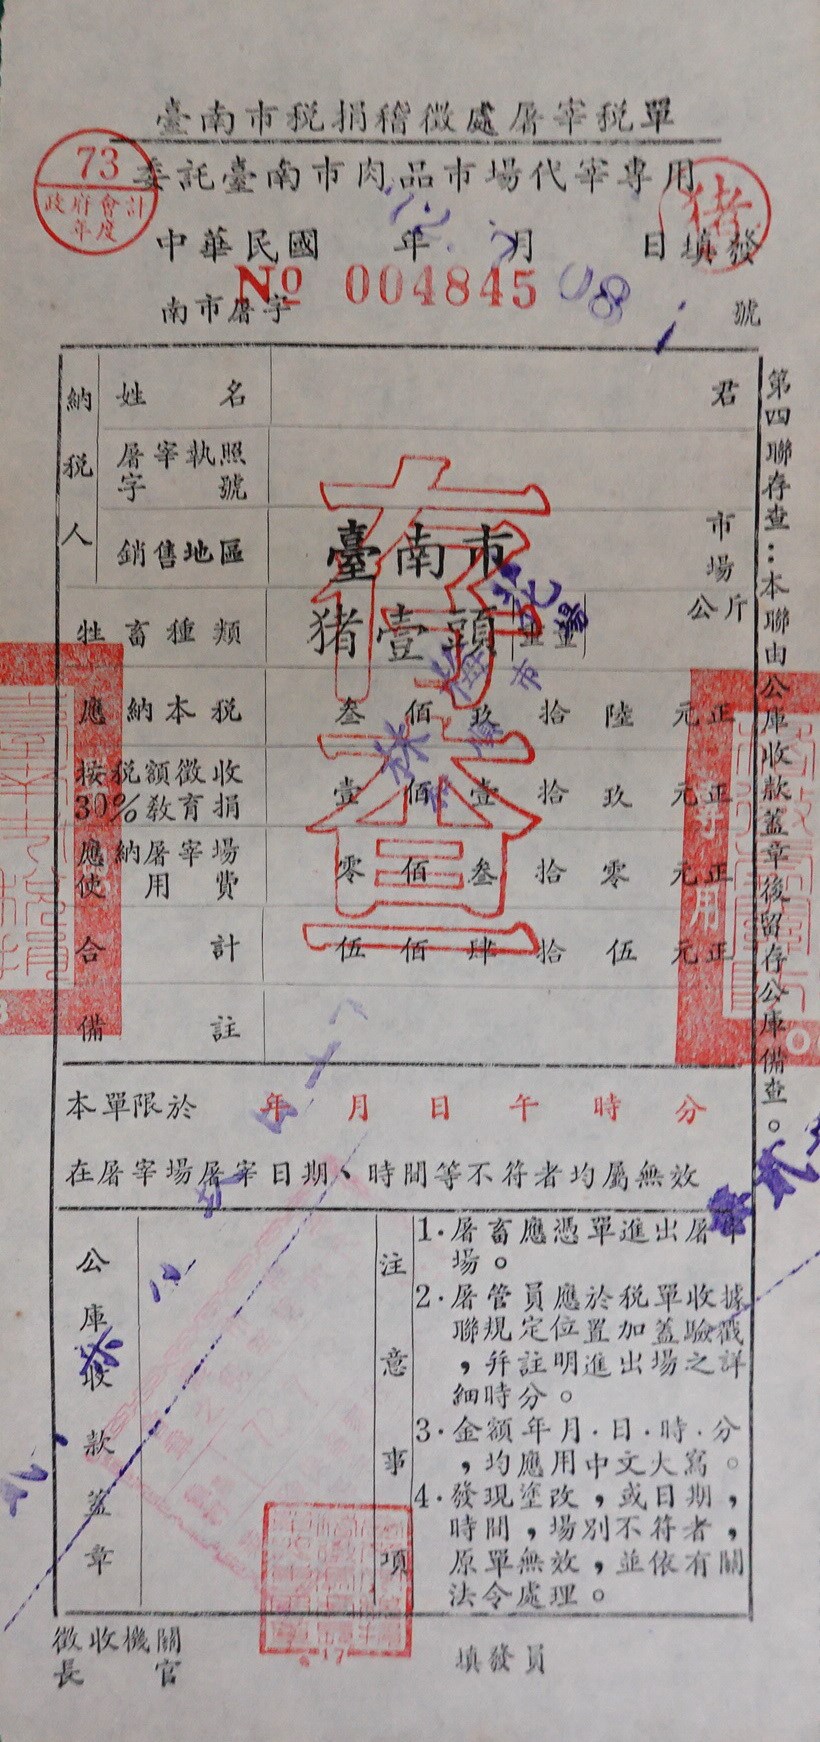 臺南市稅捐稽徵處屠宰稅單
委託臺南市肉品市場代宰專用
73
政府會計
年度
豬
中華民國 年 月 日填發
南市屠字 № 004845 號
納稅人
姓名 君
屠宰執照
字號
銷售地區 臺南市 市場
牲畜種類 猪壹頭 公斤
應納本稅 叁佰玖拾陸元正
按稅額徵收
30%教育捐 壹佰壹拾玖元正
應納屠宰場
使用費 零佰叁拾零元正
合計 伍佰肆拾伍元正
備註
存查
專用
第四聯存查：本聯由公庫收款蓋章後留存公庫備查。
本單限於 年 月 日 午 時 分
在屠宰場屠宰日期、時間等不符者均屬無效
公庫收款蓋章
注意事項
1.屠畜應憑單進出屠宰
場。
2.屠管員應於稅單收據
聯規定位置加蓋驗戳
，并註明進出場之詳
細時分。
3.金額年月.日.時.分
，均應用中文大寫。
4.發現塗改，或日期，
時間，場別不符者，
原單無效，並依有關
法令處理。
徵收機關
長官
填發員